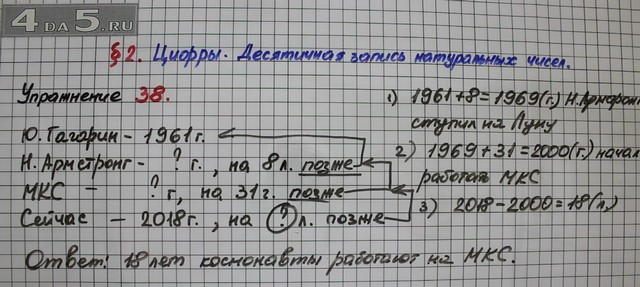 4DA5.RU
§2. Цифры. Десятичная запись натуральных чисел.
Упражнение 38.
Ю. Гагарин - 1961г.
Н. Армстронг - ? г., на 8л. позже
МКС - ? г, на 31г. позже
Сейчас - 2018г., на ? л. позже
1) 1961+8=1969(г.) Н. Армстронг
ступил на Луну
2) 1969+31=2000(г.) начал
работать МКС
3) 2018-2000=18(л.)
Ответ: 18 лет космонавты работают на МКС.